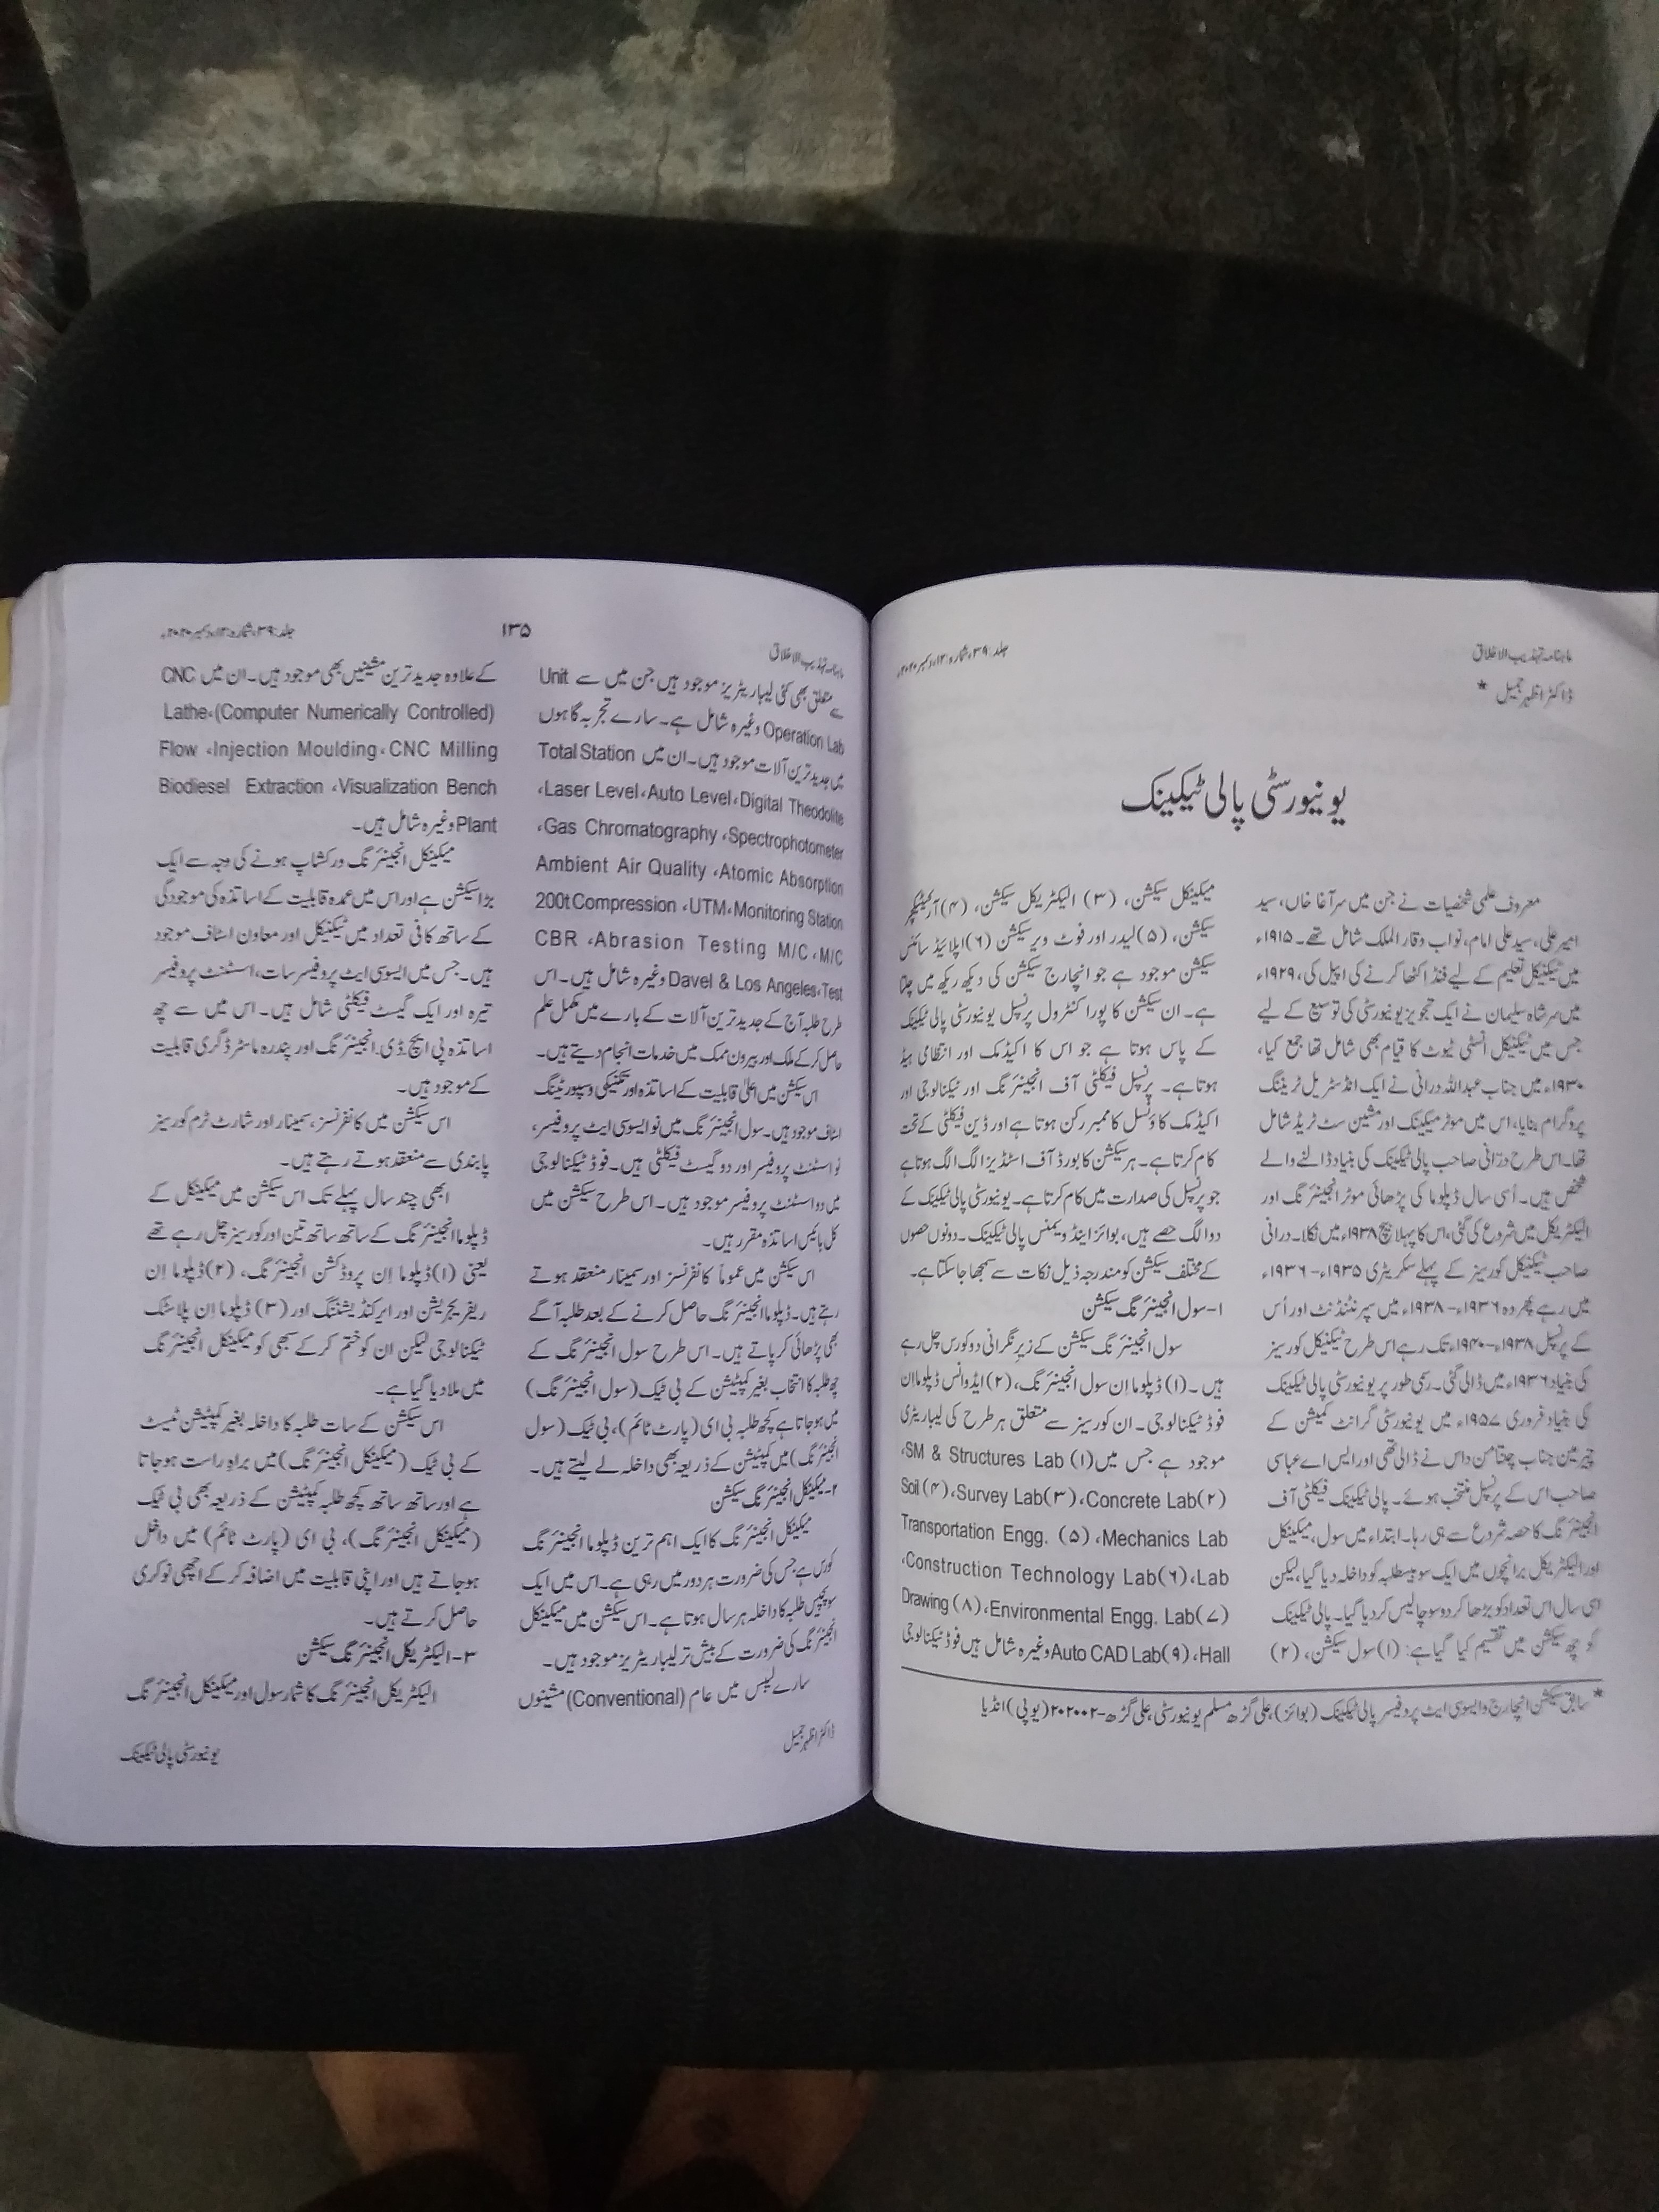 ماہنامہ تہذیب الاخلاق
جلد:۳۹، شمارہ:۱۲، دسمبر ۲۰۲۰ء
ڈاکٹر اظہر جمیل *
یونیورسٹی پالی ٹیکینک
معروف علمی شخصیات نے جن میں سر آغا خاں، سید
امیر علی، سید علی امام، نواب وقار الملک شامل تھے۔ ۱۹۱۵ء
میں ٹیکنیکل تعلیم کے لیے فنڈ اکٹھا کرنے کی اپیل کی، ۱۹۲۹ء
میں سر شاہ سلیمان نے ایک تجویز یونیورسٹی کی توسیع کے لیے
جس میں ٹیکنیکل انسٹی ٹیوٹ کا قیام بھی شامل تھا جمع کیا،
۱۹۳۰ء میں جناب عبداللہ درانی نے ایک انڈسٹریل ٹریننگ
پروگرام بنایا، اس میں موٹر میکینک اور مشین سٹ ٹریڈ شامل
تھا۔ اس طرح درّانی صاحب پالی ٹیکینک کی بنیاد ڈالنے والے
شخص ہیں۔ اُسی سال ڈپلوما کی پڑھائی موٹر انجینئرنگ اور
الیکٹریکل میں شروع کی گئی، اس کا پہلا بیچ ۱۹۳۸ء میں نکلا۔ درانی
صاحب ٹیکنیکل کورسیز کے پہلے سکریٹری ۱۹۳۵ء-۱۹۳۶ء
میں رہے پھر وہ ۱۹۳۶ء-۱۹۳۸ء میں سپرنٹنڈنٹ اور اُس
کے پرنسپل ۱۹۳۸ء-۱۹۴۰ء تک رہے اس طرح ٹیکنیکل کورسیز
کی بنیاد ۱۹۳۶ء میں ڈالی گئی۔ رسمی طور پر یونیورسٹی پالی ٹیکینک
کی بنیاد فروری ۱۹۵۷ء میں یونیورسٹی گرانٹ کمیشن کے
چیرمین جناب چنتامن داس نے ڈالی تھی اور ایس اے عباسی
صاحب اس کے پرنسپل منتخب ہوئے۔ پالی ٹیکینک فیکلٹی آف
انجینئرنگ کا حصہ شروع سے ہی رہا۔ ابتداء میں سول، میکینکل
اور الیکٹریکل برانچوں میں ایک سو بیس طلبہ کو داخلہ دیا گیا، لیکن
اسی سال اس تعداد کو بڑھا کر دو سو چالیس کر دیا گیا۔ پالی ٹیکینک
کو چھ سیکشن میں تقسیم کیا گیا ہے: (۱) سول سیکشن، (۲)
میکینکل سیکشن، (۳) الیکٹریکل سیکشن، (۴) آرکیٹیکچر
سیکشن، (۵) لیدر اور فوٹ ویر سیکشن (۶) اپلائیڈ سائنس
سیکشن موجود ہے جو انچارج سیکشن کی دیکھ ریکھ میں چلتا
ہے۔ ان سیکشن کا پورا کنٹرول پرنسپل یونیورسٹی پالی ٹیکینک
کے پاس ہوتا ہے جو اس کا اکیڈمک اور انتظامی ہیڈ
ہوتا ہے۔ پرنسپل فیکلٹی آف انجینئرنگ اور ٹیکنالوجی اور
اکیڈمک کاؤنسل کا ممبر رکن ہوتا ہے اور ڈین فیکلٹی کے تحت
کام کرتا ہے۔ ہر سیکشن کا بورڈ آف اسٹڈیز الگ الگ ہوتا ہے
جو پرنسپل کی صدارت میں کام کرتا ہے۔ یونیورسٹی پالی ٹیکینک کے
دو الگ حصے ہیں، بوائز اینڈ ویمنس پالی ٹیکینک۔ دونوں حصوں
کے مختلف سیکشن کو مندرجہ ذیل نکات سے سمجھا جا سکتا ہے۔
۱-سول انجینئرنگ سیکشن
سول انجینئرنگ سیکشن کے زیرِ نگرانی دو کورس چل رہے
ہیں۔ (۱) ڈپلوما اِن سول انجینئرنگ، (۲) ایڈوانس ڈپلوما اِن
فوڈ ٹیکنالوجی۔ ان کورسیز سے متعلق ہر طرح کی لیباریٹری
موجود ہے جس میں (۱) SM & Structures Lab،
(۲) Concrete Lab، (۳) Survey Lab، (۴) Soil
Mechanics Lab، (۵) Transportation Engg.
Lab، (۶) Construction Technology Lab،
(۷) Environmental Engg. Lab، (۸) Drawing
Hall، (۹) Auto CAD Lab وغیرہ شامل ہیں فوڈ ٹیکنالوجی
* سابق سیکشن انچارج و ایسوسی ایٹ پروفیسر پالی ٹیکینک (بوائز)، علی گڑھ مسلم یونیورسٹی، علی گڑھ-۲۰۲۰۰۲ (یو پی) انڈیا
ماہنامہ تہذیب الاخلاق
۱۳۵
جلد:۳۹، شمارہ:۱۲، دسمبر ۲۰۲۰ء
سے متعلق بھی کئی لیباریٹریز موجود ہیں جن میں سے Unit
Operation Lab وغیرہ شامل ہے۔ سارے تجربہ گاہوں
میں جدید ترین آلات موجود ہیں۔ ان میں Total Station
Digital Theodolite، Auto Level، Laser Level،
Spectrophotometer، Gas Chromatography،
Atomic Absorption، Ambient Air Quality
Monitoring Station، UTM، 200t Compression
M/C، Abrasion Testing M/C، CBR
Test، Davel & Los Angeles وغیرہ شامل ہیں۔ اس
طرح طلبہ آج کے جدید ترین آلات کے بارے میں مکمل علم
حاصل کر کے ملک اور بیرون ممک میں خدمات انجام دیتے ہیں۔
اس سیکشن میں اعلیٰ قابلیت کے اساتذہ اور تکنیکی و سپورٹینگ
اسٹاف موجود ہیں۔ سول انجینئرنگ میں نو ایسوسی ایٹ پروفیسر،
نو اسٹنٹ پروفیسر اور دو گیسٹ فیکلٹی ہیں۔ فوڈ ٹیکنالوجی
میں دو اسٹنٹ پروفیسر موجود ہیں۔ اس طرح سیکشن میں
کل بائیس اساتذہ مقرر ہیں۔
اس سیکشن میں عموماً کانفرنسز اور سمینار منعقد ہوتے
رہتے ہیں۔ ڈپلوما انجینئرنگ حاصل کرنے کے بعد طلبہ آگے
بھی پڑھائی کر پاتے ہیں۔ اس طرح سول انجینئرنگ کے
چھ طلبہ کا انتخاب بغیر کمپٹیشن کے بی ٹیک (سول انجینئرنگ)
میں ہو جاتا ہے کچھ طلبہ بی ای (پارٹ ٹائم)، بی ٹیک (سول
انجینئرنگ) میں کمپٹیشن کے ذریعہ بھی داخلہ لے لیتے ہیں۔
۲-میکینکل انجینئرنگ سیکشن
میکینکل انجینئرنگ کا ایک اہم ترین ڈپلوما انجینئرنگ
کورس ہے جس کی ضرورت ہر دور میں رہی ہے۔ اس میں ایک
سو پچیس طلبہ کا داخلہ ہر سال ہوتا ہے۔ اس سیکشن میں میکینکل
انجینئرنگ کی ضرورت کے بیش تر لیباریٹریز موجود ہیں۔
سارے لیبس میں عام (Conventional) مشینوں
کے علاوہ جدید ترین مشینیں بھی موجود ہیں۔ ان میں CNC
(Computer Numerically Controlled)، Lathe
CNC Milling، Injection Moulding، Flow
Visualization Bench، Biodiesel Extraction
Plant وغیرہ شامل ہیں۔
میکینکل انجینئرنگ ورکشاپ ہونے کی وجہ سے ایک
بڑا سیکشن ہے اور اس میں عمدہ قابلیت کے اساتذہ کی موجودگی
کے ساتھ کافی تعداد میں ٹیکنیکل اور معاون اسٹاف موجود
ہیں۔ جس میں ایسوسی ایٹ پروفیسر سات، اسٹنٹ پروفیسر
تیرہ اور ایک گیسٹ فیکلٹی شامل ہیں۔ اس میں سے چھ
اساتذہ پی ایچ۔ڈی۔ انجینئرنگ اور پندرہ ماسٹر ڈگری قابلیت
کے موجود ہیں۔
اس سیکشن میں کانفرنسز، سمینار اور شارٹ ٹرم کورسیز
پابندی سے منعقد ہوتے رہتے ہیں۔
ابھی چند سال پہلے تک اس سیکشن میں میکینکل کے
ڈپلوما انجینئرنگ کے ساتھ ساتھ تین اور کورسیز چل رہے تھے
یعنی (۱) ڈپلوما اِن پروڈکشن انجینئرنگ، (۲) ڈپلوما اِن
ریفریجریشن اور ایرکنڈیشننگ اور (۳) ڈپلوما اِن پلاسٹک
ٹیکنالوجی لیکن ان کو ختم کر کے سبھی کو میکینکل انجینئرنگ
میں ملا دیا گیا ہے۔
اس سیکشن کے سات طلبہ کا داخلہ بغیر کمپٹیشن ٹیسٹ
کے بی ٹیک (میکینکل انجینئرنگ) میں براہِ راست ہو جاتا
ہے اور ساتھ ساتھ کچھ طلبہ کمپٹیشن کے ذریعہ بھی بی ٹیک
(میکینکل انجینئرنگ)، بی ای (پارٹ ٹائم) میں داخل
ہو جاتے ہیں اور اپنی قابلیت میں اضافہ کر کے اچھی نوکری
حاصل کرتے ہیں۔
۳-الیکٹریکل انجینئرنگ سیکشن
الیکٹریکل انجینئرنگ کا شمار سول اور میکینکل انجینئرنگ
ڈاکٹر اظہر جمیل
یونیورسٹی پالی ٹیکینک